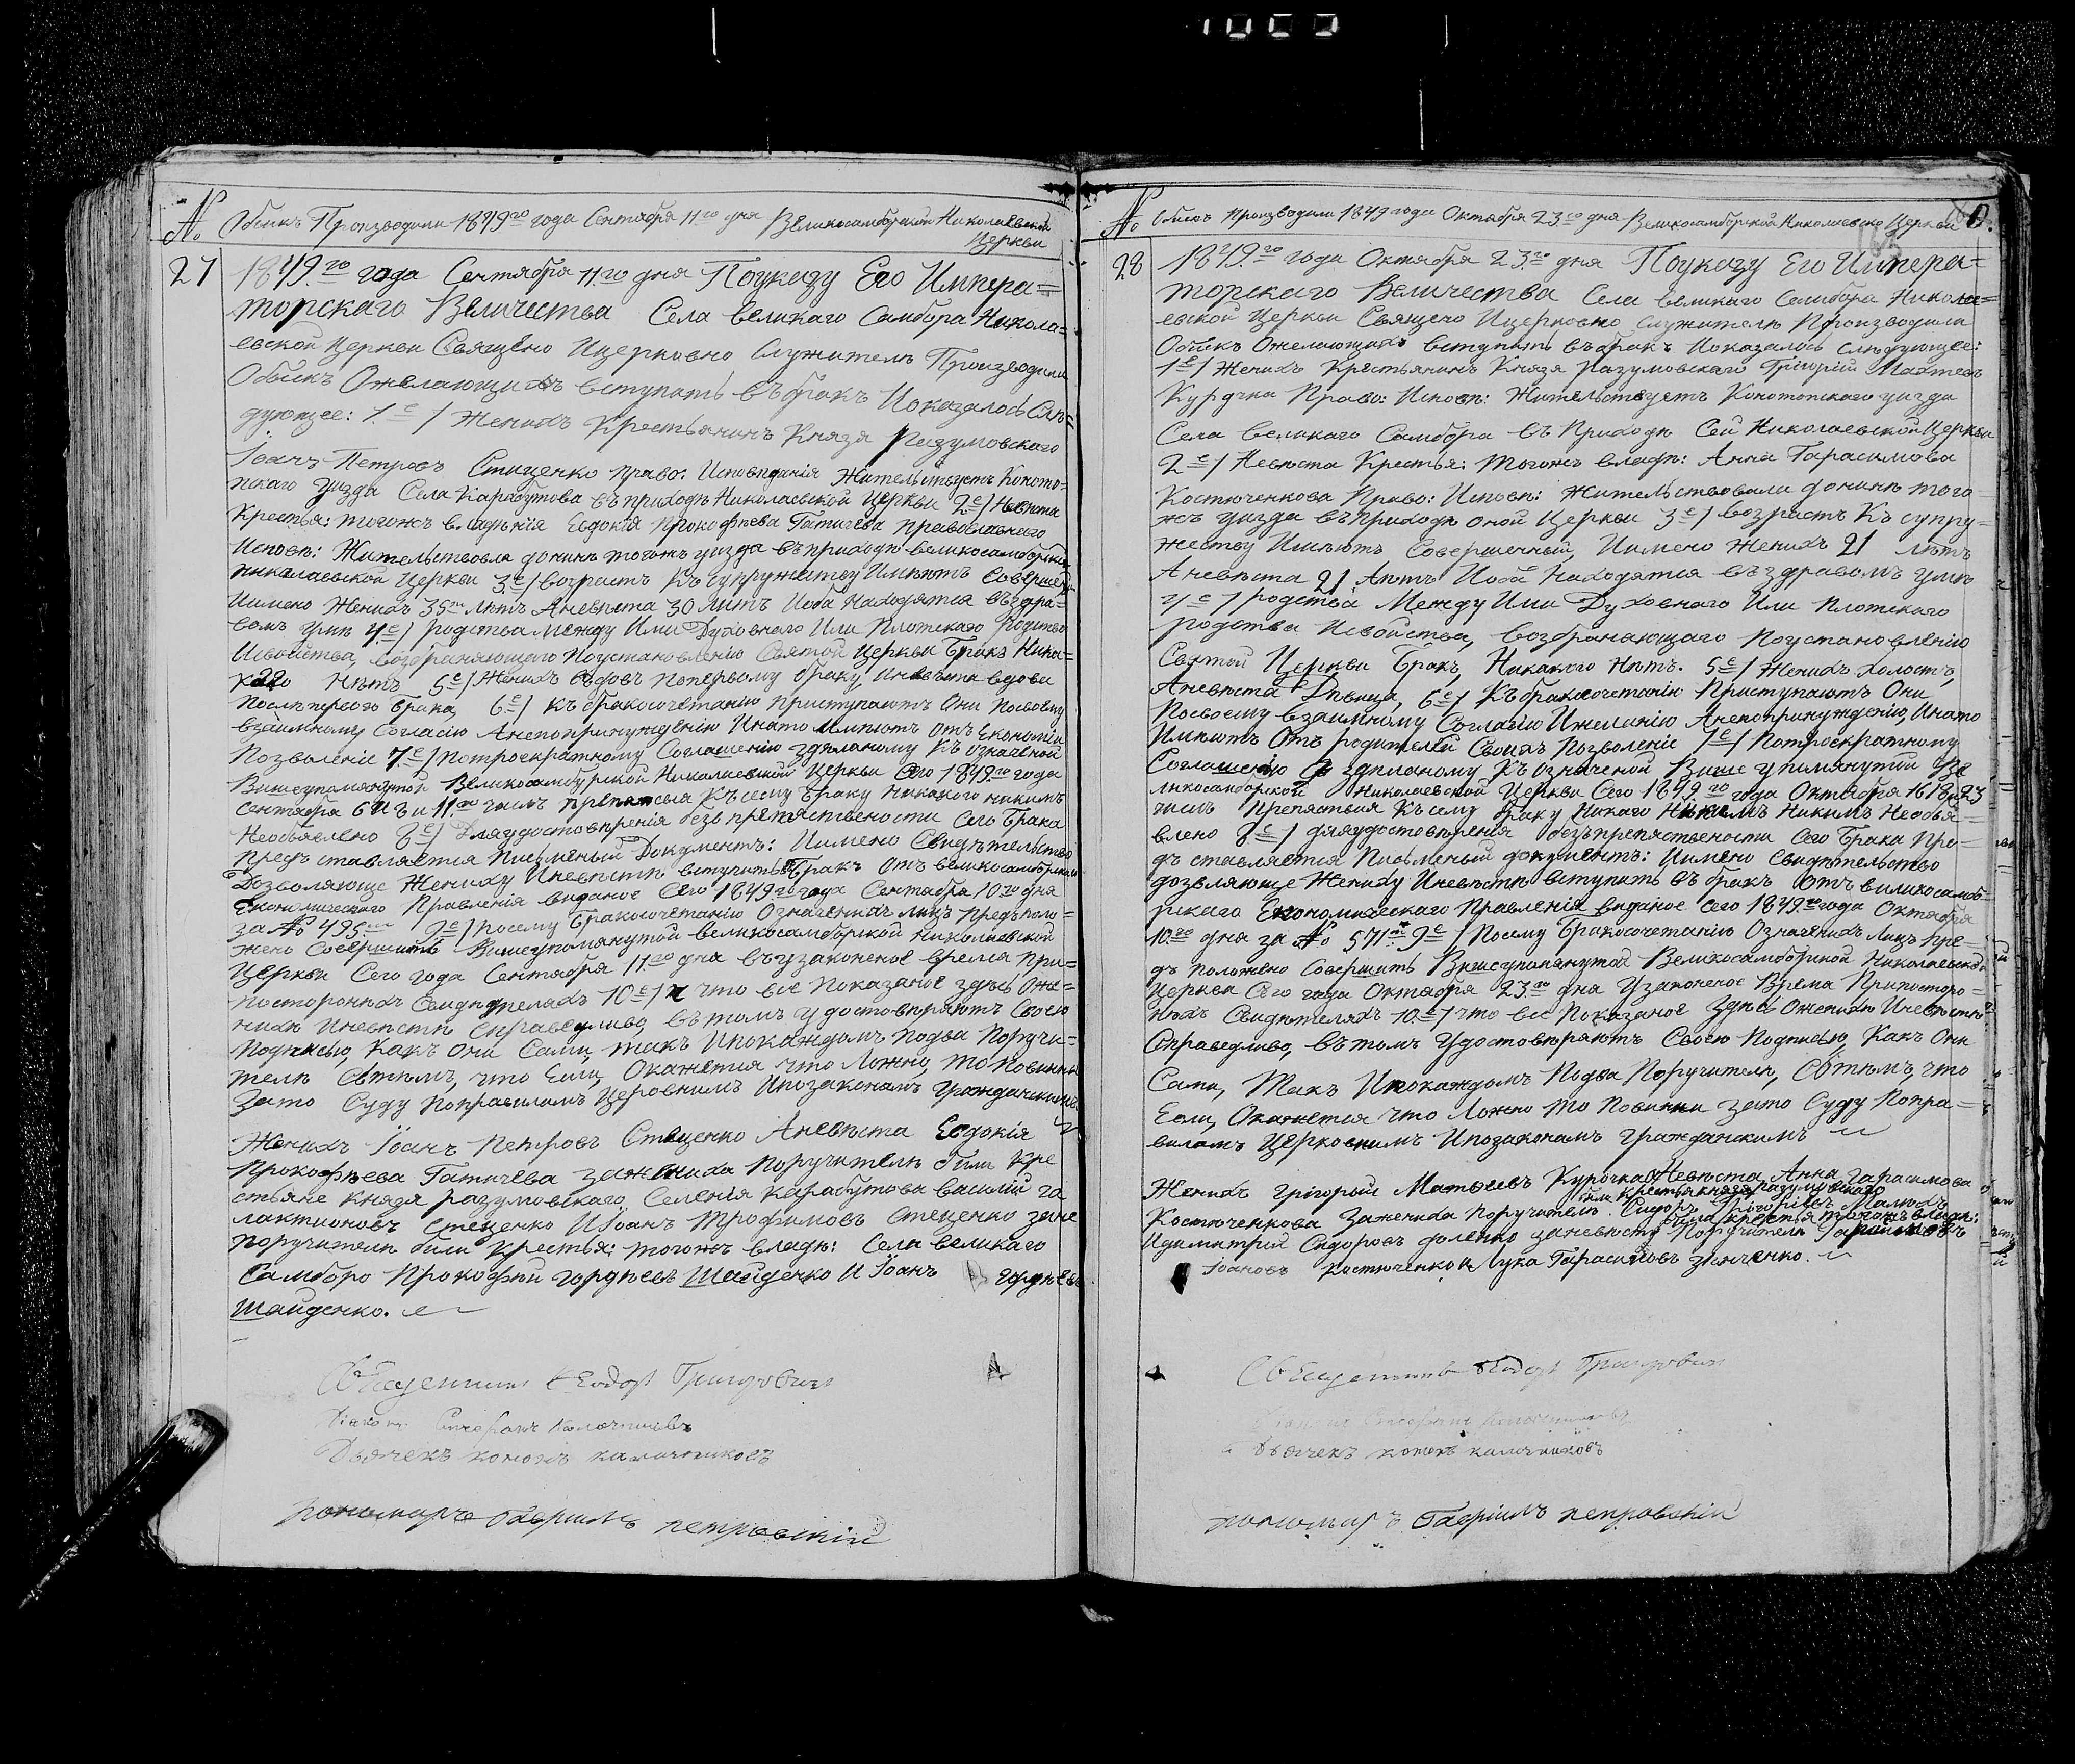 № Обыскъ Производили 1849го года Сентября 11го дня Великосамборской Николаевской
Церкви
27
1849го года Сентября 11го дня Поуказу Его Импера=
торскаго Величества Села великаго Самбора Никола=
евской Церкви Священо Ицерковно Служители Производили
Обыскъ Ожелающихъ вступить въ бракъ Иоказалось Слѣ=
дующее: 1е/ Женихъ Крестьянинъ Князя Разумовскаго
Іоанъ Петровъ Стеценко право: Исповѣданія Жительствуетъ Коното=
пскаго уизда Села Карабутова въ приходѣ Николаевской Церкви 2е/ Невѣста
Крестья: тогожъ владѣнія Евдокія Прокофѣева Гатичева православнаго
Исповѣ: Жительствовла донинѣ тогожъ уизда въ приходѣ великосамборской
николаевской Церкви 3е/ возрастъ Къ супружеству Имѣютъ Соверше
Иимено Женихъ 35ть лѣтъ Аневѣста 30 лѣтъ Иоба Находятся въ здра=
вомъ умѣ 4е/ родства между Ими Духовнаго Или Плотскаго Родства
Исвойства, возбраняющаго Поустановлению Святой Церкви Бракъ Ника=
каго Нѣтъ 5е/ Женихъ вдовъ поперьвому браку, Иневѣста вдова
Послѣ первого брака, 6е/ къ бракосочетанію приступаютъ Они Посвоему
взаимному Согласію Анепопринужденію Инато Имѣютъ отъ Економіи
Позволеніе 7е/ Потроекратному Соглашенію здѣланому Къ означеной
Вишеупомянутой Великосамбурской Николаевской Церкви Сего 1849го года
Сентября 6 и 8 и 11го числъ препятсвія Къ сему браку никакого никимъ
Необъявлено 8е/ Дляудостовѣренія безъ препятствености сего Брака
Предъставляется Письменый Документъ: Иимено Свидѣтельство
Дозволяюще Жениху Иневѣсти вступить въ Бракъ отъ великосамборскаго
Економическаго Правленія виданое Сего 1849го года Сентября 10го дня
за № 495 9е/ Посему Бракосочетанію Означенихъ лицъ предъполо=
жено Совершить Вишеупомянутой великосамборской николаевской
Церкви Сего года Сентября 11го дня въ узаконеное время при=
постороннихъ Свидѣтеляхъ 10е/ что все показаное здѣсь Оже=
нихѣ Иневѣсти Справедливо, въ томъ удостовѣряютъ Своею
Подписью, Какъ Они Сами, такъ Ипокаждомъ Подва Поручи=
теля Сотимъ, что Если, Окажется что Ложно, то повинны
Зато Суду Поправиламъ Церовнимъ Ипозаконамъ гражданскимъ
Женихъ Іоанъ Петровъ Стеценко Аневѣста Евдокія
Прокофѣева Гатичева зажениха Поручители били Кре
стьяне Князя разумовскаго, Селенія Карабутова Василій га
лактіоновъ Стеценко ИІоанъ Трофимовъ Стеценко зане
поручители били Крестья: тогожъ владѣ: Села великаго
Самборо Прокофий гордѣевъ Шайденко И Іоанъ гордѣевъ
Шайденко.
Священникъ Ѳеодоръ Григоровичъ
Діаконъ Стефанъ Калачниковъ
Дьячекъ кононъ калачниковъ
пономаръ Гавриилъ петровскій
№ Обискъ Производили 1849 года Октября 23го дня Великосамборской Николаевско Церкви
28
1849го года Октября 23го дня Поуказу Его Импера=
торскаго Величества Села великаго Самбора Никола=
евской Церкви Священо Ицерковно служители Производили
Обыскъ Ожелающихъ вступить въ бракъ Иоказалось слѣдующее:
1е/ Женихъ Крестьянинъ Князя Разумовскаго Григорій Матвѣевъ
Курочка Право: Исповѣ: Жительствуетъ Конотопскаго уизда
Села великаго Самбора въ Приходѣ Сей Николаевской Церкви
2е/ Невѣста Крестья: тогожъ владѣ: Анна Гарасимова
Костюченкова Право: Исповѣ: Жительствовала донинѣ того
жъ уизда въ приходѣ оной Церкви 3е/ возрастъ Къ супру=
жеству Имѣютъ Совершенный, Иимено Женихъ 21 лѣтъ
Аневѣста 21 лѣтъ Иоба Находятся въ здравомъ умѣ
4е/ родства Между Ими Духовнаго Или Плотскаго
родства Исвойства, возбраняющаго Поустановленію
Святой Церкви Бракъ, Никакого Нѣтъ. 5е/ Женихъ холостъ,
Аневѣста Дѣвица, 6е/ Къ бракосочетанію Приступаютъ Они
Посвоему взаимному Согласію Ижеланію Анепопринужденію, Инато
Имѣютъ Отъ родителей Своихъ Позволеніе 7е/ Потроекратному
Соглашенію здѣланому Къ Означеной Више упомянутой Ве
ликосамборской Николаевской Церкви Сего 1849го года Октября 16 18 и 23
числъ Препятствія Къ сему браку Никаго Никимъ Необья=
влено 8е/ Дляудостовѣренія безъпрепятствености Сего Брака Пре=
дъ ставляется Письменый документъ: Иимено Свидѣтельство
дозвляюще Жениху Иневѣсти вступить въ бракъ отъ великосамбо=
рскаго Економическаго Правленія виданое сего 1849го года Октября
10го дня за № 571 9е/ Посему Бракосочетанію Означенихъ лицъ пре=
дъ положено Совершить Вишеупомянутой Великосамборской Николаевской
Церкви Сего года Октября 23го дня Узаконеное Врема Припосторо=
нихъ Свидѣтеляхъ 10е/ что все Показаное Здѣсь Оженихѣ Иневѣсти
Справедливо, въ томъ Удостовѣряютъ Своею Подписью, Какъ Они
Сами, Такъ Ипокаждомъ Подва Поручителя, Сотимъ, что
Если, Окажется что Ложно то Повинни зато Суду Попра=
виламъ Церковнимъ Ипозаконамъ Гражданскимъ
Женихъ Григорый Матвеевъ Курочка Аневѣста Анна Гарасимова
били Крестья князя разумовскаго
Костюченкова Зажениха Поручители Сидоръ Григоріевъ Малюкъ
били крестья тогожъ владѣ:
Идимитрій Сидоровъ доленко заневѣсту Поручители
Іоановъ Костюченко и Лука Гарасимовъ зінченко.
Священникъ Ѳеодоръ Григоровичъ
Дьячекъ кононъ калачниковъ
пономаръ Гавриилъ петровскій